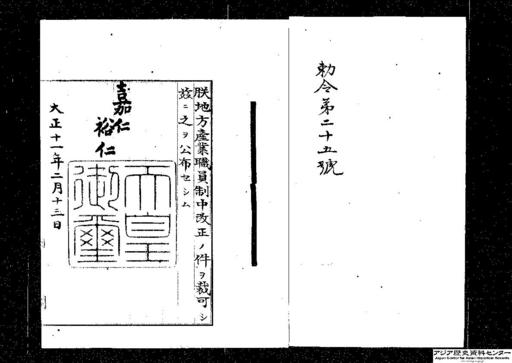 勅令第二十五號
朕地方産業職員制中改正ノ件ヲ裁可シ
茲ニ之ヲ公布セシム
嘉仁
裕仁
天皇
御璽
大正十一年二月十三日
アジア歴史資料センター
Japan Center for Asian Historical Records